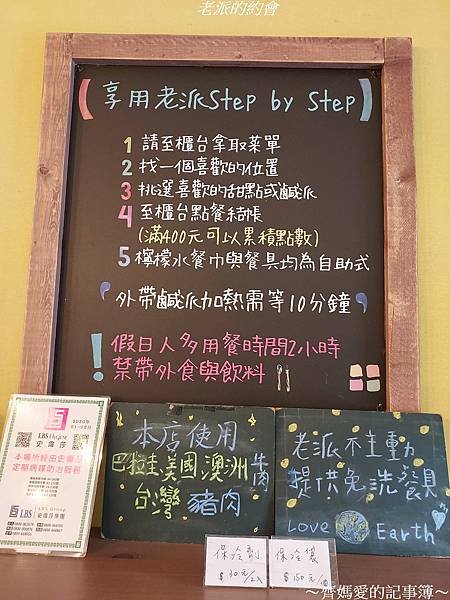 老派的約會
享用老派Step by Step
1 請至櫃台拿取菜單
2 找一個喜歡的位置
3 挑選喜歡的甜點或鹹派
4 至櫃台點餐結帳
(滿400元可以累積點數)
5 檸檬水餐巾與餐具均為自助式
外帶鹹派加熱需等10分鐘
! 假日人多用餐時間2小時
禁帶外食與飲料
2020年
LBS Hygiene
史偉莎
本場所經由史偉莎
定期病媒防治服務
LBS
LBS Group
史偉莎集團
本店使用
巴拉圭美國澳洲牛肉
台灣 豬肉
老派不主動
提供免洗餐具
Love Earth
保冷劑
$30元/2入
保冷袋
$150元/個
～齊媽愛的記事簿～